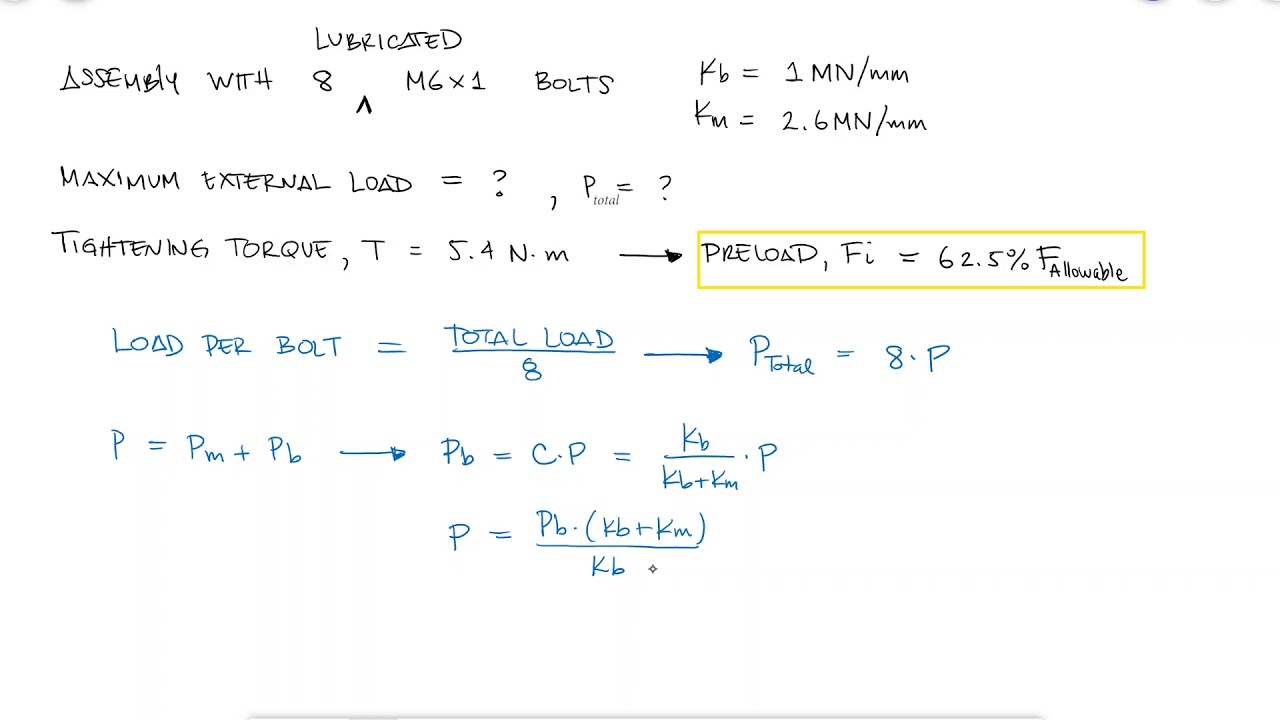 LUBRICATED
ASSEMBLY WITH 8 ∧ M6×1 BOLTS
Kb = 1 MN/mm
Km = 2.6 MN/mm
MAXIMUM EXTERNAL LOAD = ? , Ptotal = ?
TIGHTENING TORQUE, T = 5.4 N·m → PRELOAD, Fi = 62.5% FAllowable
LOAD PER BOLT = TOTAL LOAD / 8 → PTotal = 8·P
P = Pm + Pb → Pb = C·P = Kb / Kb+Km · P
P = Pb·(Kb+Km) / Kb